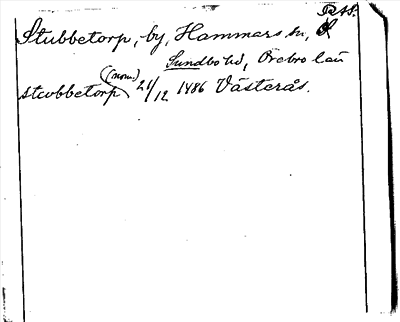 Stubbetorp, by, Hammars sn,
Sundbo hd, Örebro län
(nom.)
stwbbetorp 21/12 1486 Västerås.